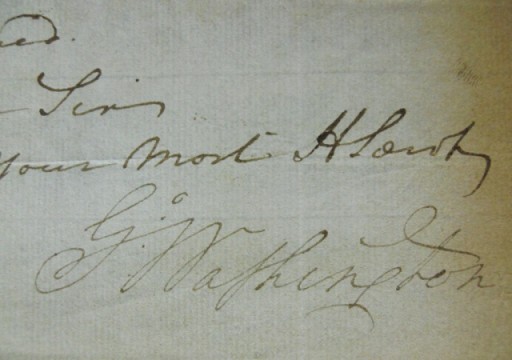 Sir,
Your Most H Servt,
G° Washington